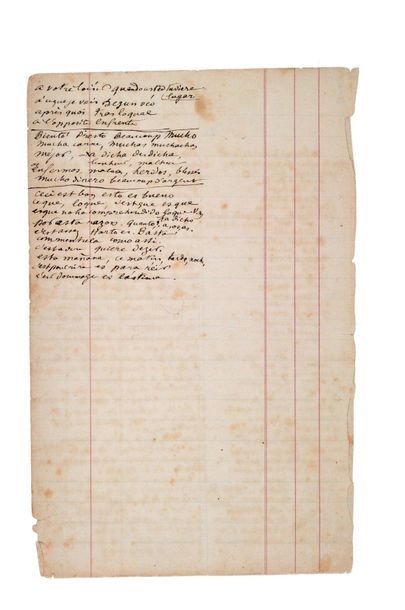 a votre loisir quando usted tuviere
lugar
à ce que je vois segun veo
après quoi tras loqual
a l'opposite enfrente
Bientôt Presto beaucoup mucho
mucha carne, muchos muchachos
mejor, la dicha desdicha
bonheur, malheur
Enfermos, malos, heridos, blessés
mucho dinero beaucoup d'argent
Ceci est bon esto es bueno
ce que, loque, c'est que es que
es que no ha comprehendido loque
ha dicho
por esta razon. quantos
c'est assez Harto es. Basta
comment cela como asi
c'est a dire quiere dezir
esta mañana, ce matin, tarde,
c'est pour rire es para reir
c'est dommage es lastima